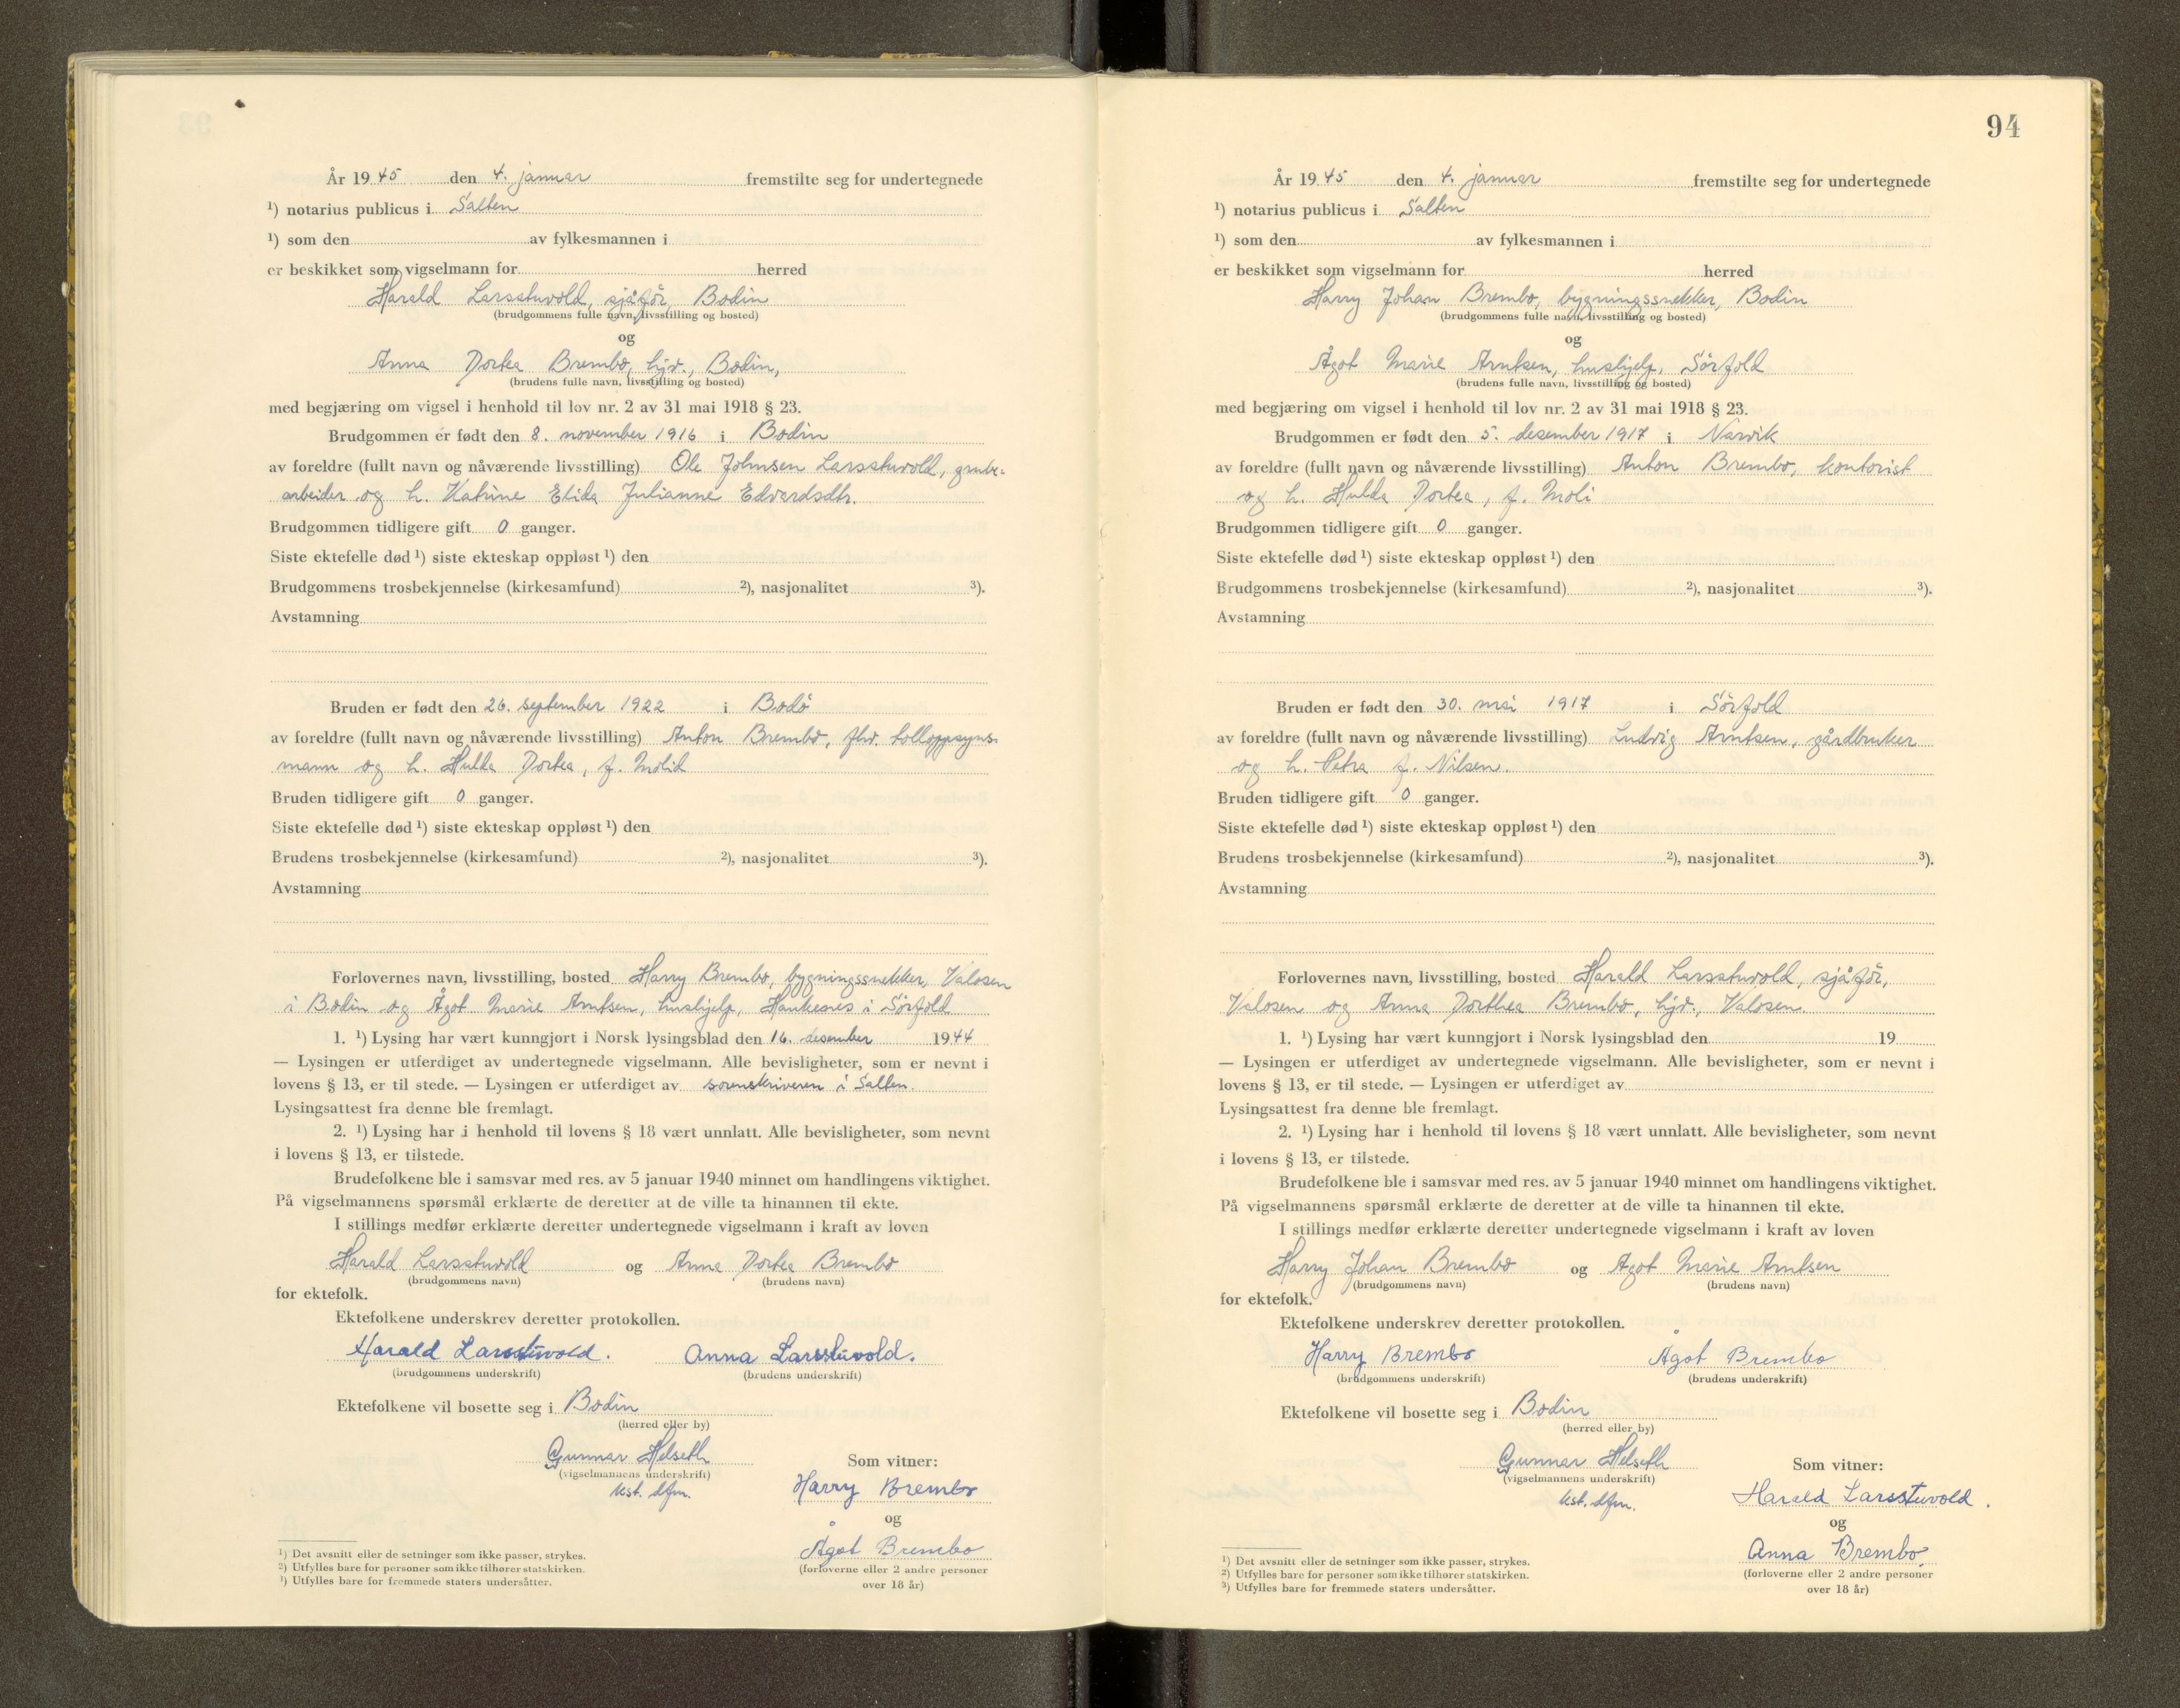 År 1945 den 4. januar fremstilte seg for undertegnede
¹) notarius publicus i Salten
¹) som den av fylkesmannen i
er beskikket som vigselmann for herred
Harald Larsstuvold, sjåför, Bodin
(brudgommens fulle navn, livsstilling og bosted)
og
Anna Dortea Brembo, hjv., Bodin,
(brudens fulle navn, livsstilling og bosted)
med begjæring om vigsel i henhold til lov nr. 2 av 31 mai 1918 § 23.
Brudgommen er født den 8. november 1916 i Bodin
av foreldre (fullt navn og nåværende livsstilling) Ole Johnsen Larsstuvold, grube-
arbeider og h. Katrine Elida Julianne Edvardsdtr.
Brudgommen tidligere gift 0 ganger.
Siste ektefelle død ¹) siste ekteskap oppløst ¹) den
Brudgommens trosbekjennelse (kirkesamfund) ²), nasjonalitet ³).
Avstamning
Bruden er født den 26. september 1922 i Bodö
av foreldre (fullt navn og nåværende livsstilling) Anton Brembo, fhv. tolloppsyns-
mann og h. Hulda Dortea, f. Molid
Bruden tidligere gift 0 ganger.
Siste ektefelle død ¹) siste ekteskap oppløst ¹) den
Brudens trosbekjennelse (kirkesamfund) ²), nasjonalitet ³).
Avstamning
Forlovernes navn, livsstilling, bosted Harry Brembo, bygningssnekker, Valosen
i Bodin og Ågot Marie Arntsen, hushjelp, i Sörfold
1. ¹) Lysing har vært kunngjort i Norsk lysingsblad den 16. desember 1944
— Lysingen er utferdiget av undertegnede vigselmann. Alle bevisligheter, som er nevnt i
lovens § 13, er til stede. — Lysingen er utferdiget av sorenskriveren i Salten.
Lysingsattest fra denne ble fremlagt.
2. ¹) Lysing har i henhold til lovens § 18 vært unnlatt. Alle bevisligheter, som nevnt
i lovens § 13, er tilstede.
Brudefolkene ble i samsvar med res. av 5 januar 1940 minnet om handlingens viktighet.
På vigselmannens spørsmål erklærte de deretter at de ville ta hinannen til ekte.
I stillings medfør erklærte deretter undertegnede vigselmann i kraft av loven
Harald Larsstuvold og Anna Dortea Brembo
(brudgommens navn) (brudens navn)
for ektefolk.
Ektefolkene underskrev deretter protokollen.
Harald Larsstuvold. Anna Larsstuvold.
(brudgommens underskrift) (brudens underskrift)
Ektefolkene vil bosette seg i Bodin
(herred eller by)
Gunnar Helseth
(vigselmannens underskrift)
kst. dfm.
Som vitner:
Harry Brembo
og
Ågot Brembo
(forloverne eller 2 andre personer
over 18 år)
¹) Det avsnitt eller de setninger som ikke passer, strykes.
²) Utfylles bare for personer som ikke tilhører statskirken.
³) Utfylles bare for fremmede staters undersåtter.
94
År 1945 den 4. januar fremstilte seg for undertegnede
¹) notarius publicus i Salten
¹) som den av fylkesmannen i
er beskikket som vigselmann for herred
Harry Johan Brembo, bygningssnekker, Bodin
(brudgommens fulle navn, livsstilling og bosted)
og
Ågot Marie Arntsen, hushjelp, Sörfold
(brudens fulle navn, livsstilling og bosted)
med begjæring om vigsel i henhold til lov nr. 2 av 31 mai 1918 § 23.
Brudgommen er født den 5. desember 1917 i Narvik
av foreldre (fullt navn og nåværende livsstilling) Anton Brembo, kontorist
og h. Hulda Dortea, f. Moli
Brudgommen tidligere gift 0 ganger.
Siste ektefelle død ¹) siste ekteskap oppløst ¹) den
Brudgommens trosbekjennelse (kirkesamfund) ²), nasjonalitet ³).
Avstamning
Bruden er født den 30. mai 1917 i Sörfold
av foreldre (fullt navn og nåværende livsstilling) Ludvig Arntsen, gårdbruker
og h. Petra f. Nilsen.
Bruden tidligere gift 0 ganger.
Siste ektefelle død ¹) siste ekteskap oppløst ¹) den
Brudens trosbekjennelse (kirkesamfund) ²), nasjonalitet ³).
Avstamning
Forlovernes navn, livsstilling, bosted Harald Larsstuvold, sjåför,
Valosen og Anna Dorthea Brembo, hjv., Valosen.
1. ¹) Lysing har vært kunngjort i Norsk lysingsblad den 19
— Lysingen er utferdiget av undertegnede vigselmann. Alle bevisligheter, som er nevnt i
lovens § 13, er til stede. — Lysingen er utferdiget av
Lysingsattest fra denne ble fremlagt.
2. ¹) Lysing har i henhold til lovens § 18 vært unnlatt. Alle bevisligheter, som nevnt
i lovens § 13, er tilstede.
Brudefolkene ble i samsvar med res. av 5 januar 1940 minnet om handlingens viktighet.
På vigselmannens spørsmål erklærte de deretter at de ville ta hinannen til ekte.
I stillings medfør erklærte deretter undertegnede vigselmann i kraft av loven
Harry Johan Brembo og Agot Marie Arntsen
(brudgommens navn) (brudens navn)
for ektefolk.
Ektefolkene underskrev deretter protokollen.
Harry Brembo Ågot Brembo
(brudgommens underskrift) (brudens underskrift)
Ektefolkene vil bosette seg i Bodin
(herred eller by)
Gunnar Helseth
(vigselmannens underskrift)
kst. dfm.
Som vitner:
Harald Larsstuvold.
og
Anna Brembo.
(forloverne eller 2 andre personer
over 18 år)
¹) Det avsnitt eller de setninger som ikke passer, strykes.
²) Utfylles bare for personer som ikke tilhører statskirken.
³) Utfylles bare for fremmede staters undersåtter.